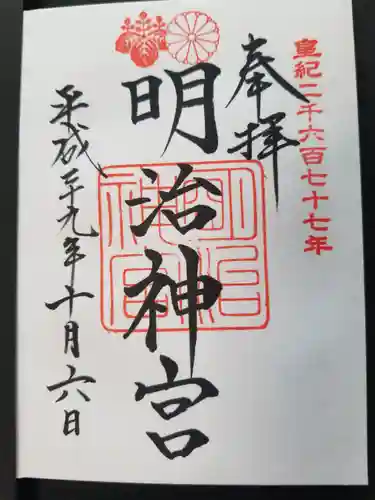 皇紀二千六百七十七年
奉拝
明治神宮
平成二十九年十月六日
明治神宮